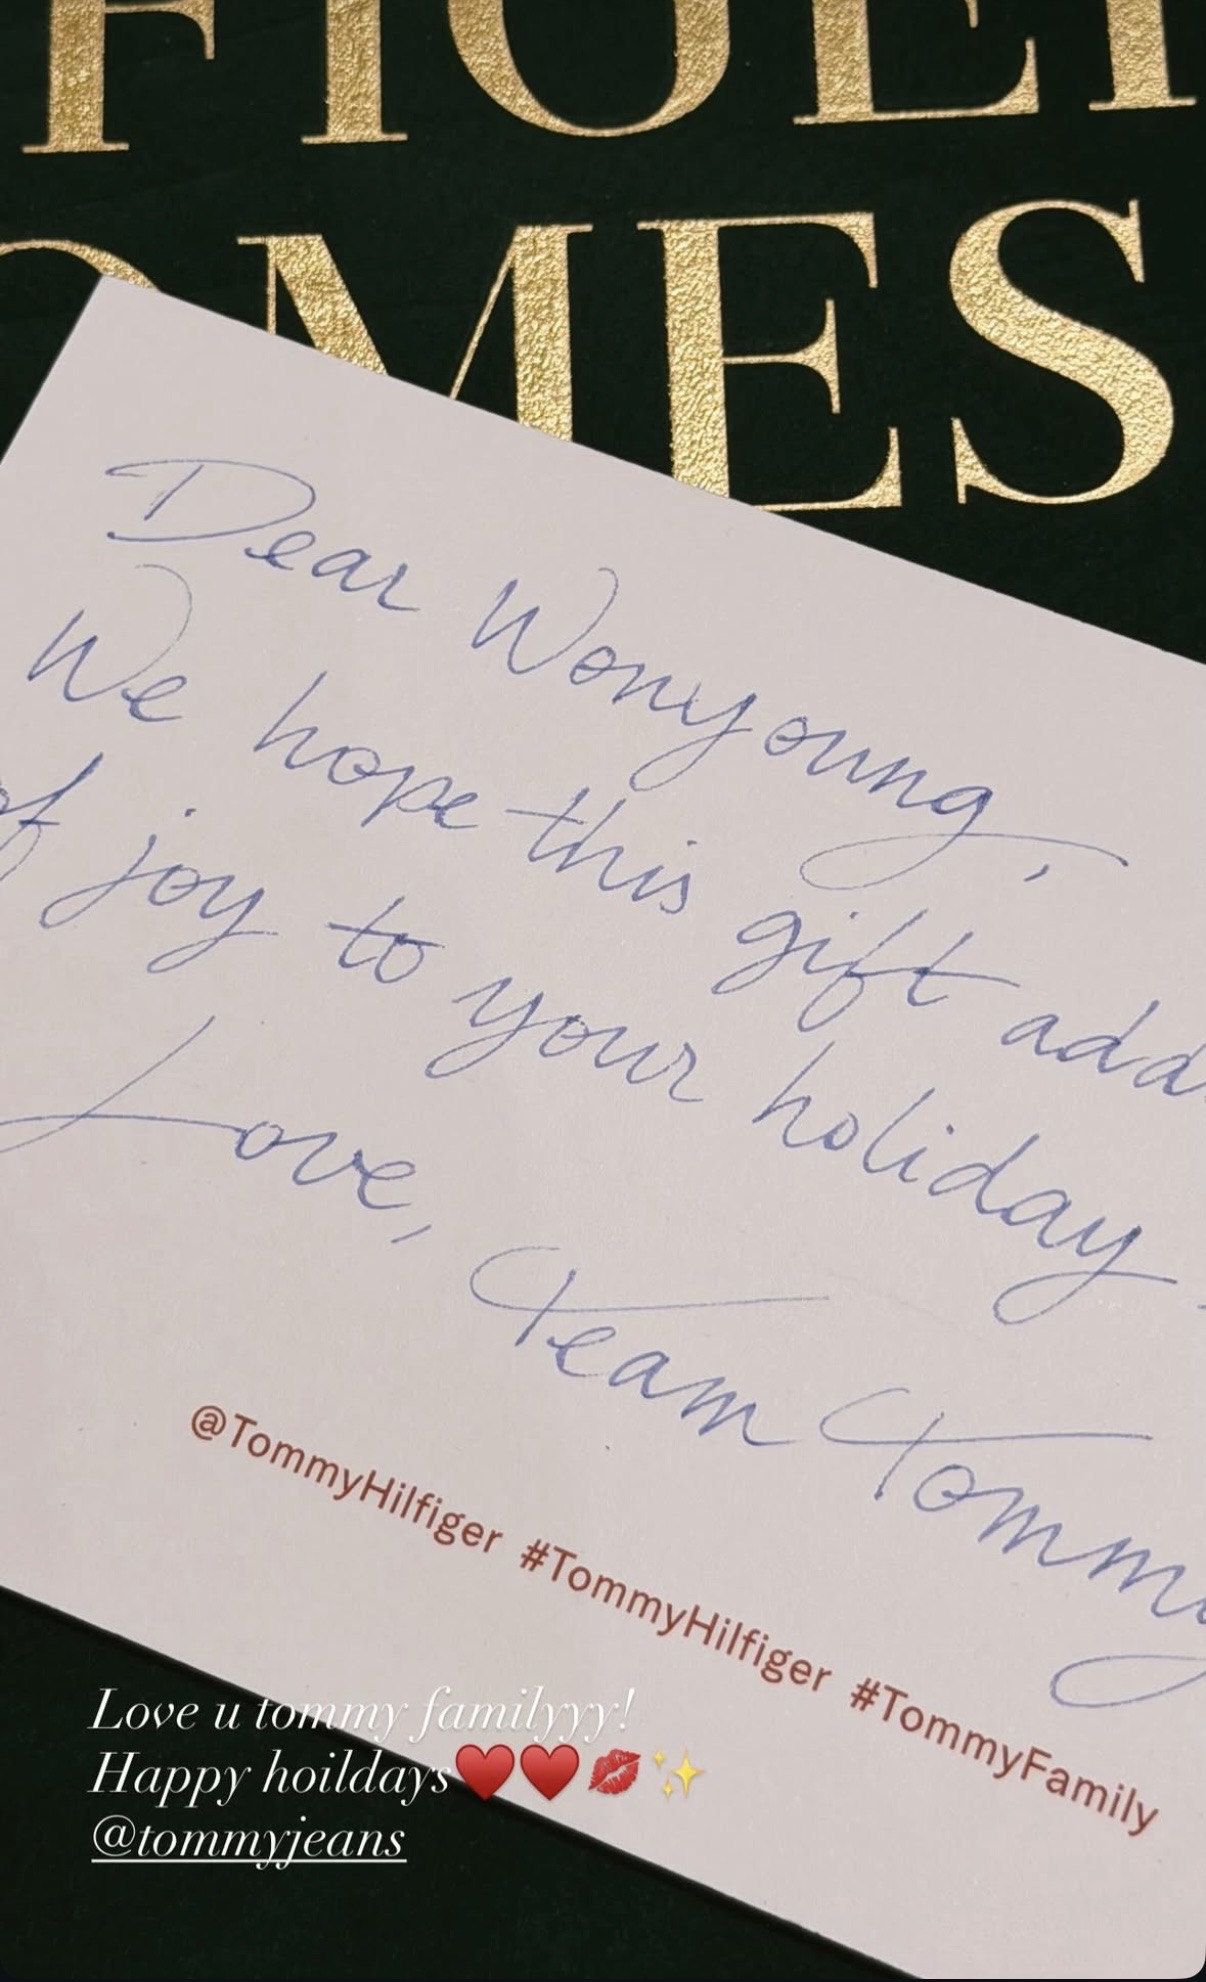 OMES
Dear Wonyoung,
We hope this gift adds
of joy to your holiday.
Love, Team Tommy
@TommyHilfiger #TommyHilfiger #TommyFamily
Love u tommy familyyy!
Happy hoildays♥️♥️💋✨
@tommyjeans